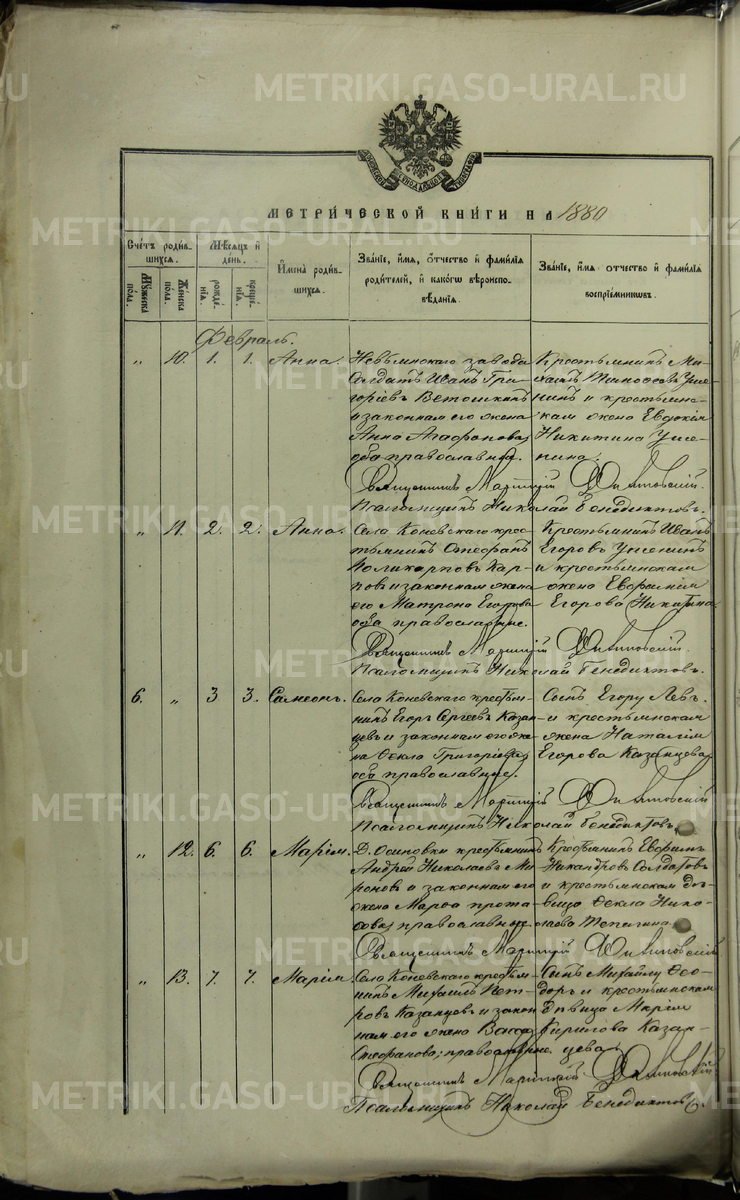 METRIKI.GASO-URAL.RU
МЕТРИЧЕСКОЙ КНИГИ НА 1880
Счетъ родив-
шихся.
Мѣсяцъ и
день.
Имена родив-
шихся.
Званіе, имя, отчество и фамилія
родителей, и какого вѣроиспо-
вѣданія.
Званіе, имя отчество и фамилія
воспріемниковъ.
Мужеска
пола.
Женска
пола.
рожде-
нія.
креще-
нія.
Февраль.
„ 10. 1. 1. Анна.
Невьянскаго завода
Солдатъ Иванъ Гри-
горіевъ Ветошкинъ
и законная его жена
Анна Агафонова,
оба православные.
Крестьянинъ Ми-
хаилъ
и крестьянс-
кая жена Евдокія
Никитина
Священникъ
Псаломщикъ Николай Бенедиктовъ.
„ 11. 2. 2. Анна.
Села Коневскаго крес-
тьянинъ Стефанъ
Поликарповъ Кар-
повъ и законная жена
его Матрона Егорова
оба православные.
Крестьянинъ Иванъ
Егоровъ
и крестьянская
жена Евфимія
Егорова Никитина.
Священникъ
Псаломщикъ Николай Бенедиктовъ.
6. „ 3 3. Симеонъ.
Села Коневскаго крестья-
нинъ Егоръ Сергеевъ Казан-
цевъ и законная его же-
на Ѳекла Григоріева,
оба православные.
Сынъ Егору Левъ.
и крестьянская
жена Наталія
Егорова Казанцева
Священникъ
Псаломщикъ Николай Бенедиктовъ.
„ 12. 6. 6. Марія.
Д. Осиновки крестьянинъ
Андрей Николаевъ Ми-
роновъ и законная его
жена Марѳа
православные
Крестьянинъ Евфимъ
Никандровъ Солдатовъ
и крестьянская дѣ-
вица Ѳекла Нико-
лаева
Священникъ
„ 13. 7. 7. Марія.
Села Коневскаго крестья-
нинъ Михаилъ Пет-
ровъ Казанцевъ и закон-
ная его жена Васса
Стефанова; православные.
Сынъ Михаилу Ѳео-
доръ и крестьянская
дѣвица Марія
Кирилова Казан-
цева.
Священникъ
Псаломщикъ Николай Бенедиктовъ.